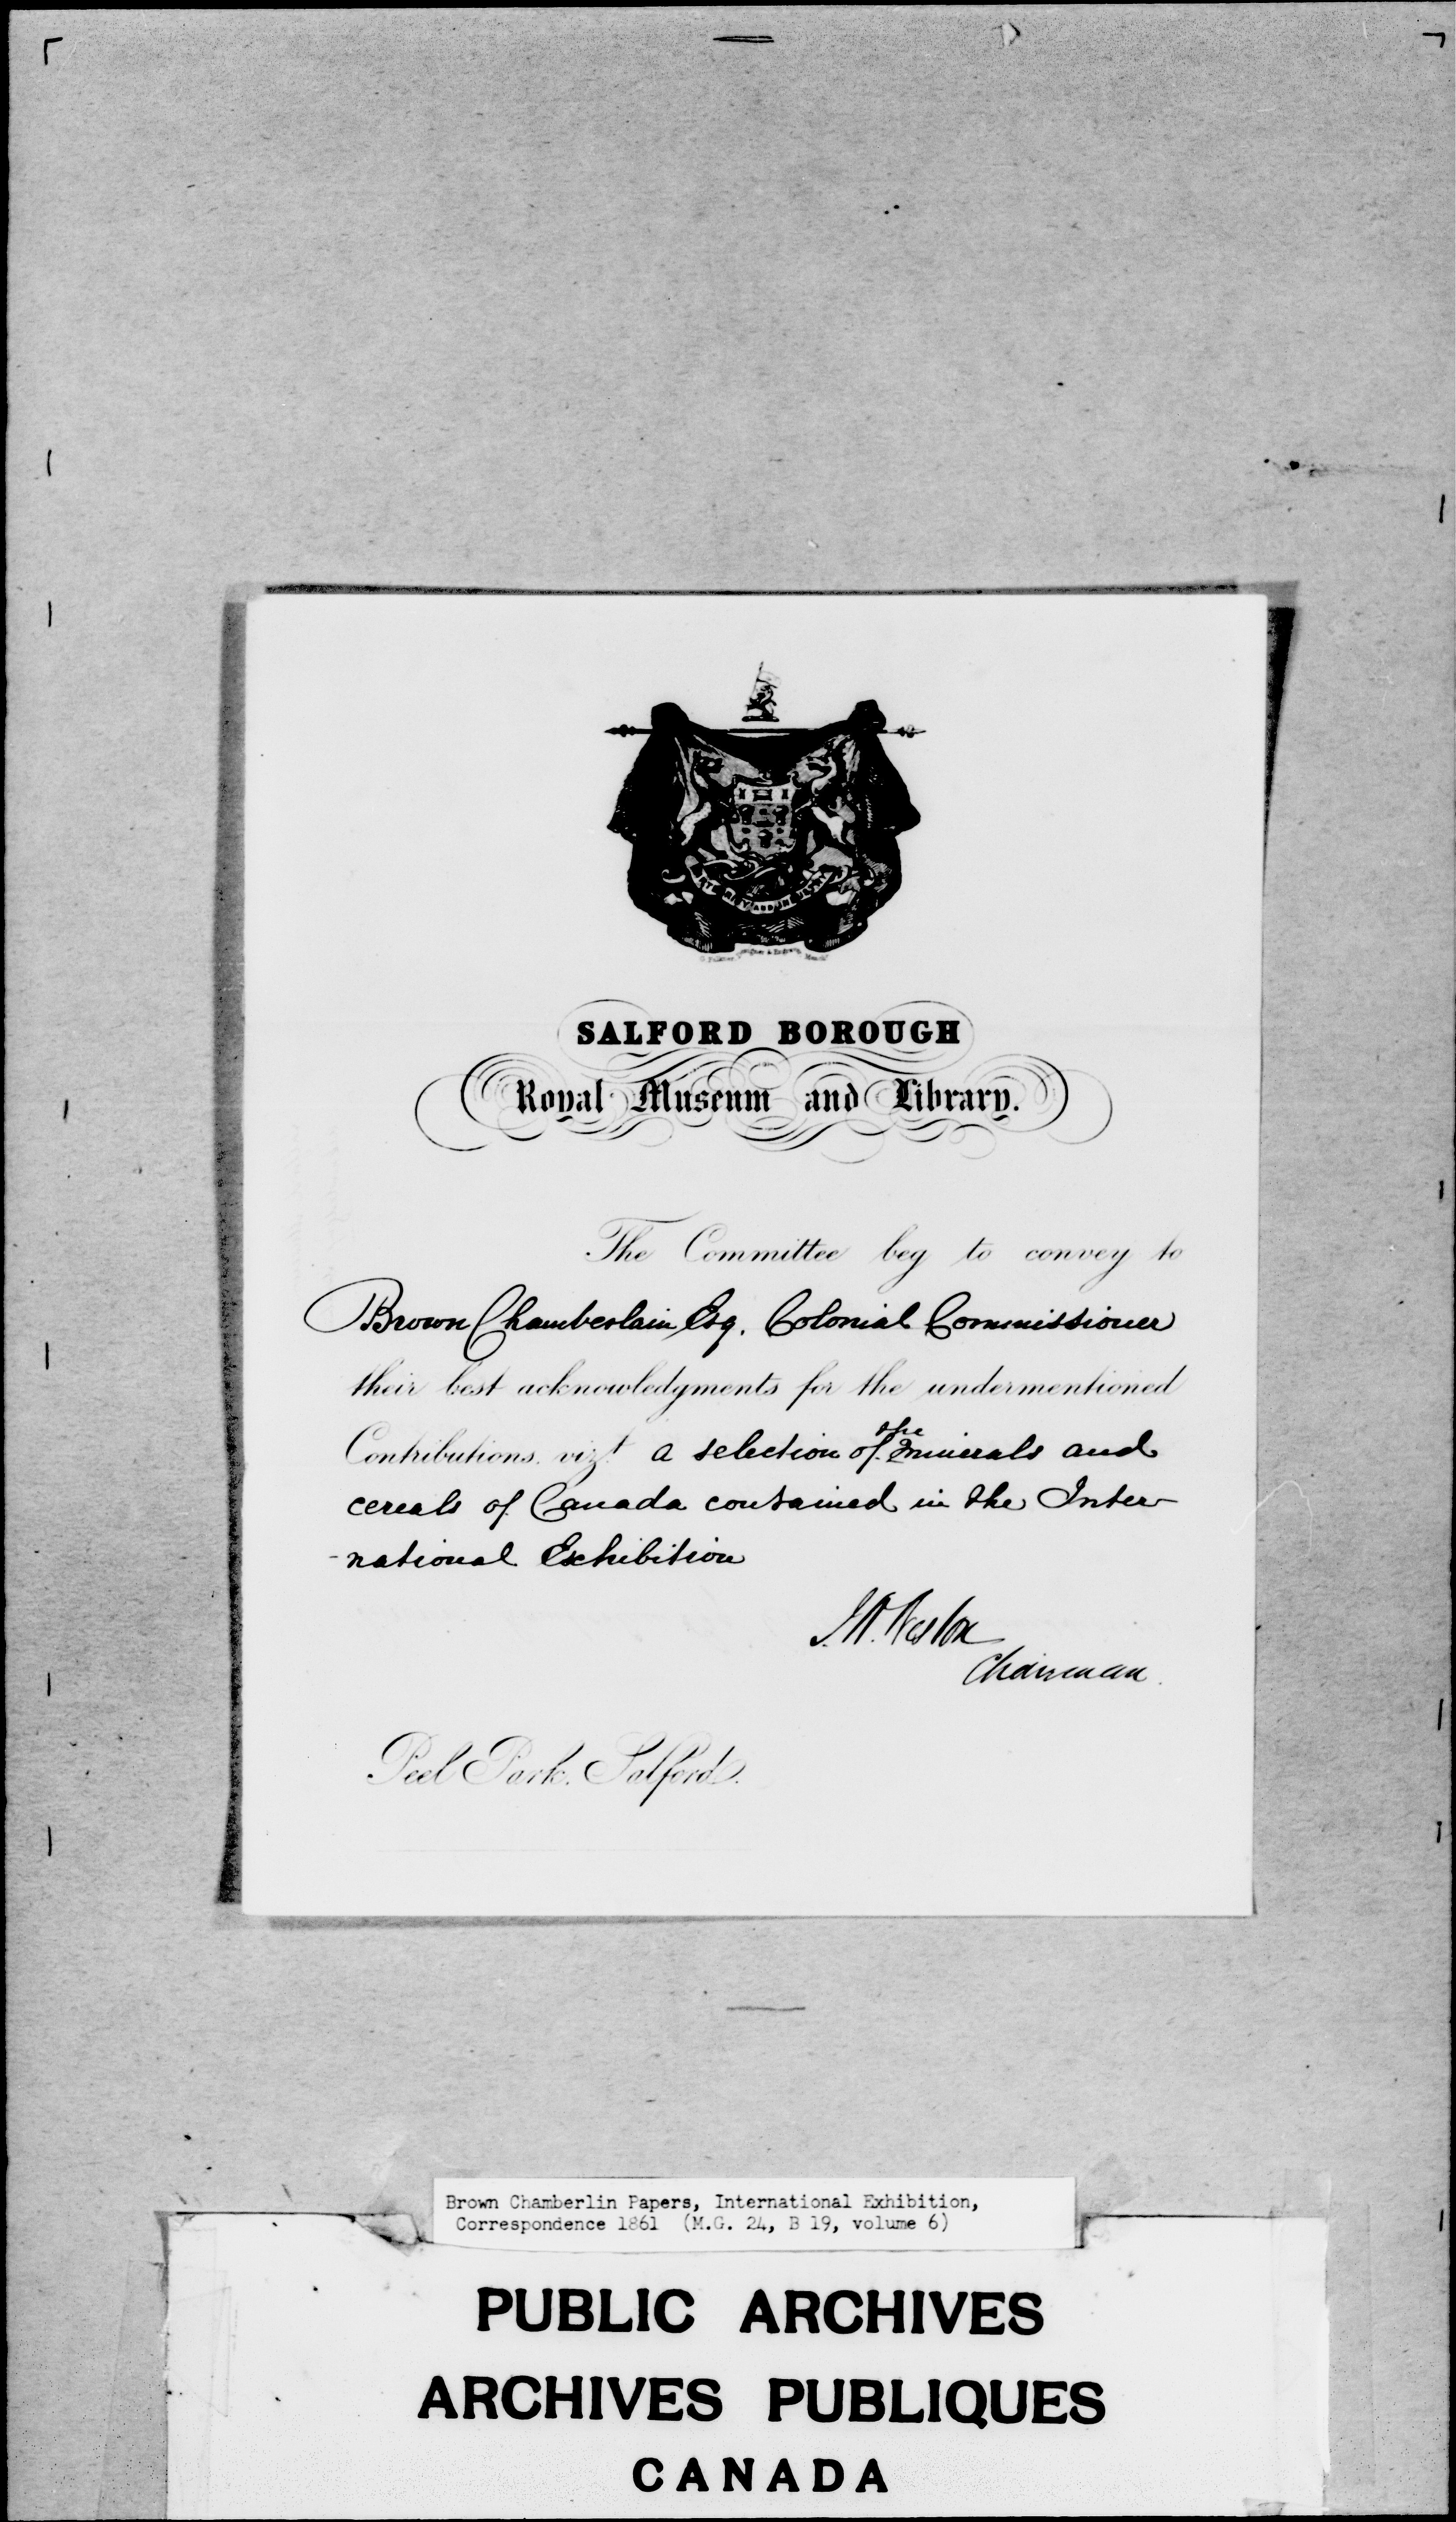 SALFORD BOROUGH
Royal Museum and Library.
The Committee beg to convey to
Brown Chamberlain Esq. Colonial Commissioner
their best acknowledgments for the undermentioned
Contributions, vizt. a selection of the minerals and
cereals of Canada contained in the Inter-
-national Exhibition
J. W. Weston
Chairman.
Peel Park. Salford.
Brown Chamberlin Papers, International Exhibition,
Correspondence 1861 (M.G. 24, B 19, volume 6)
PUBLIC ARCHIVES
ARCHIVES PUBLIQUES
CANADA